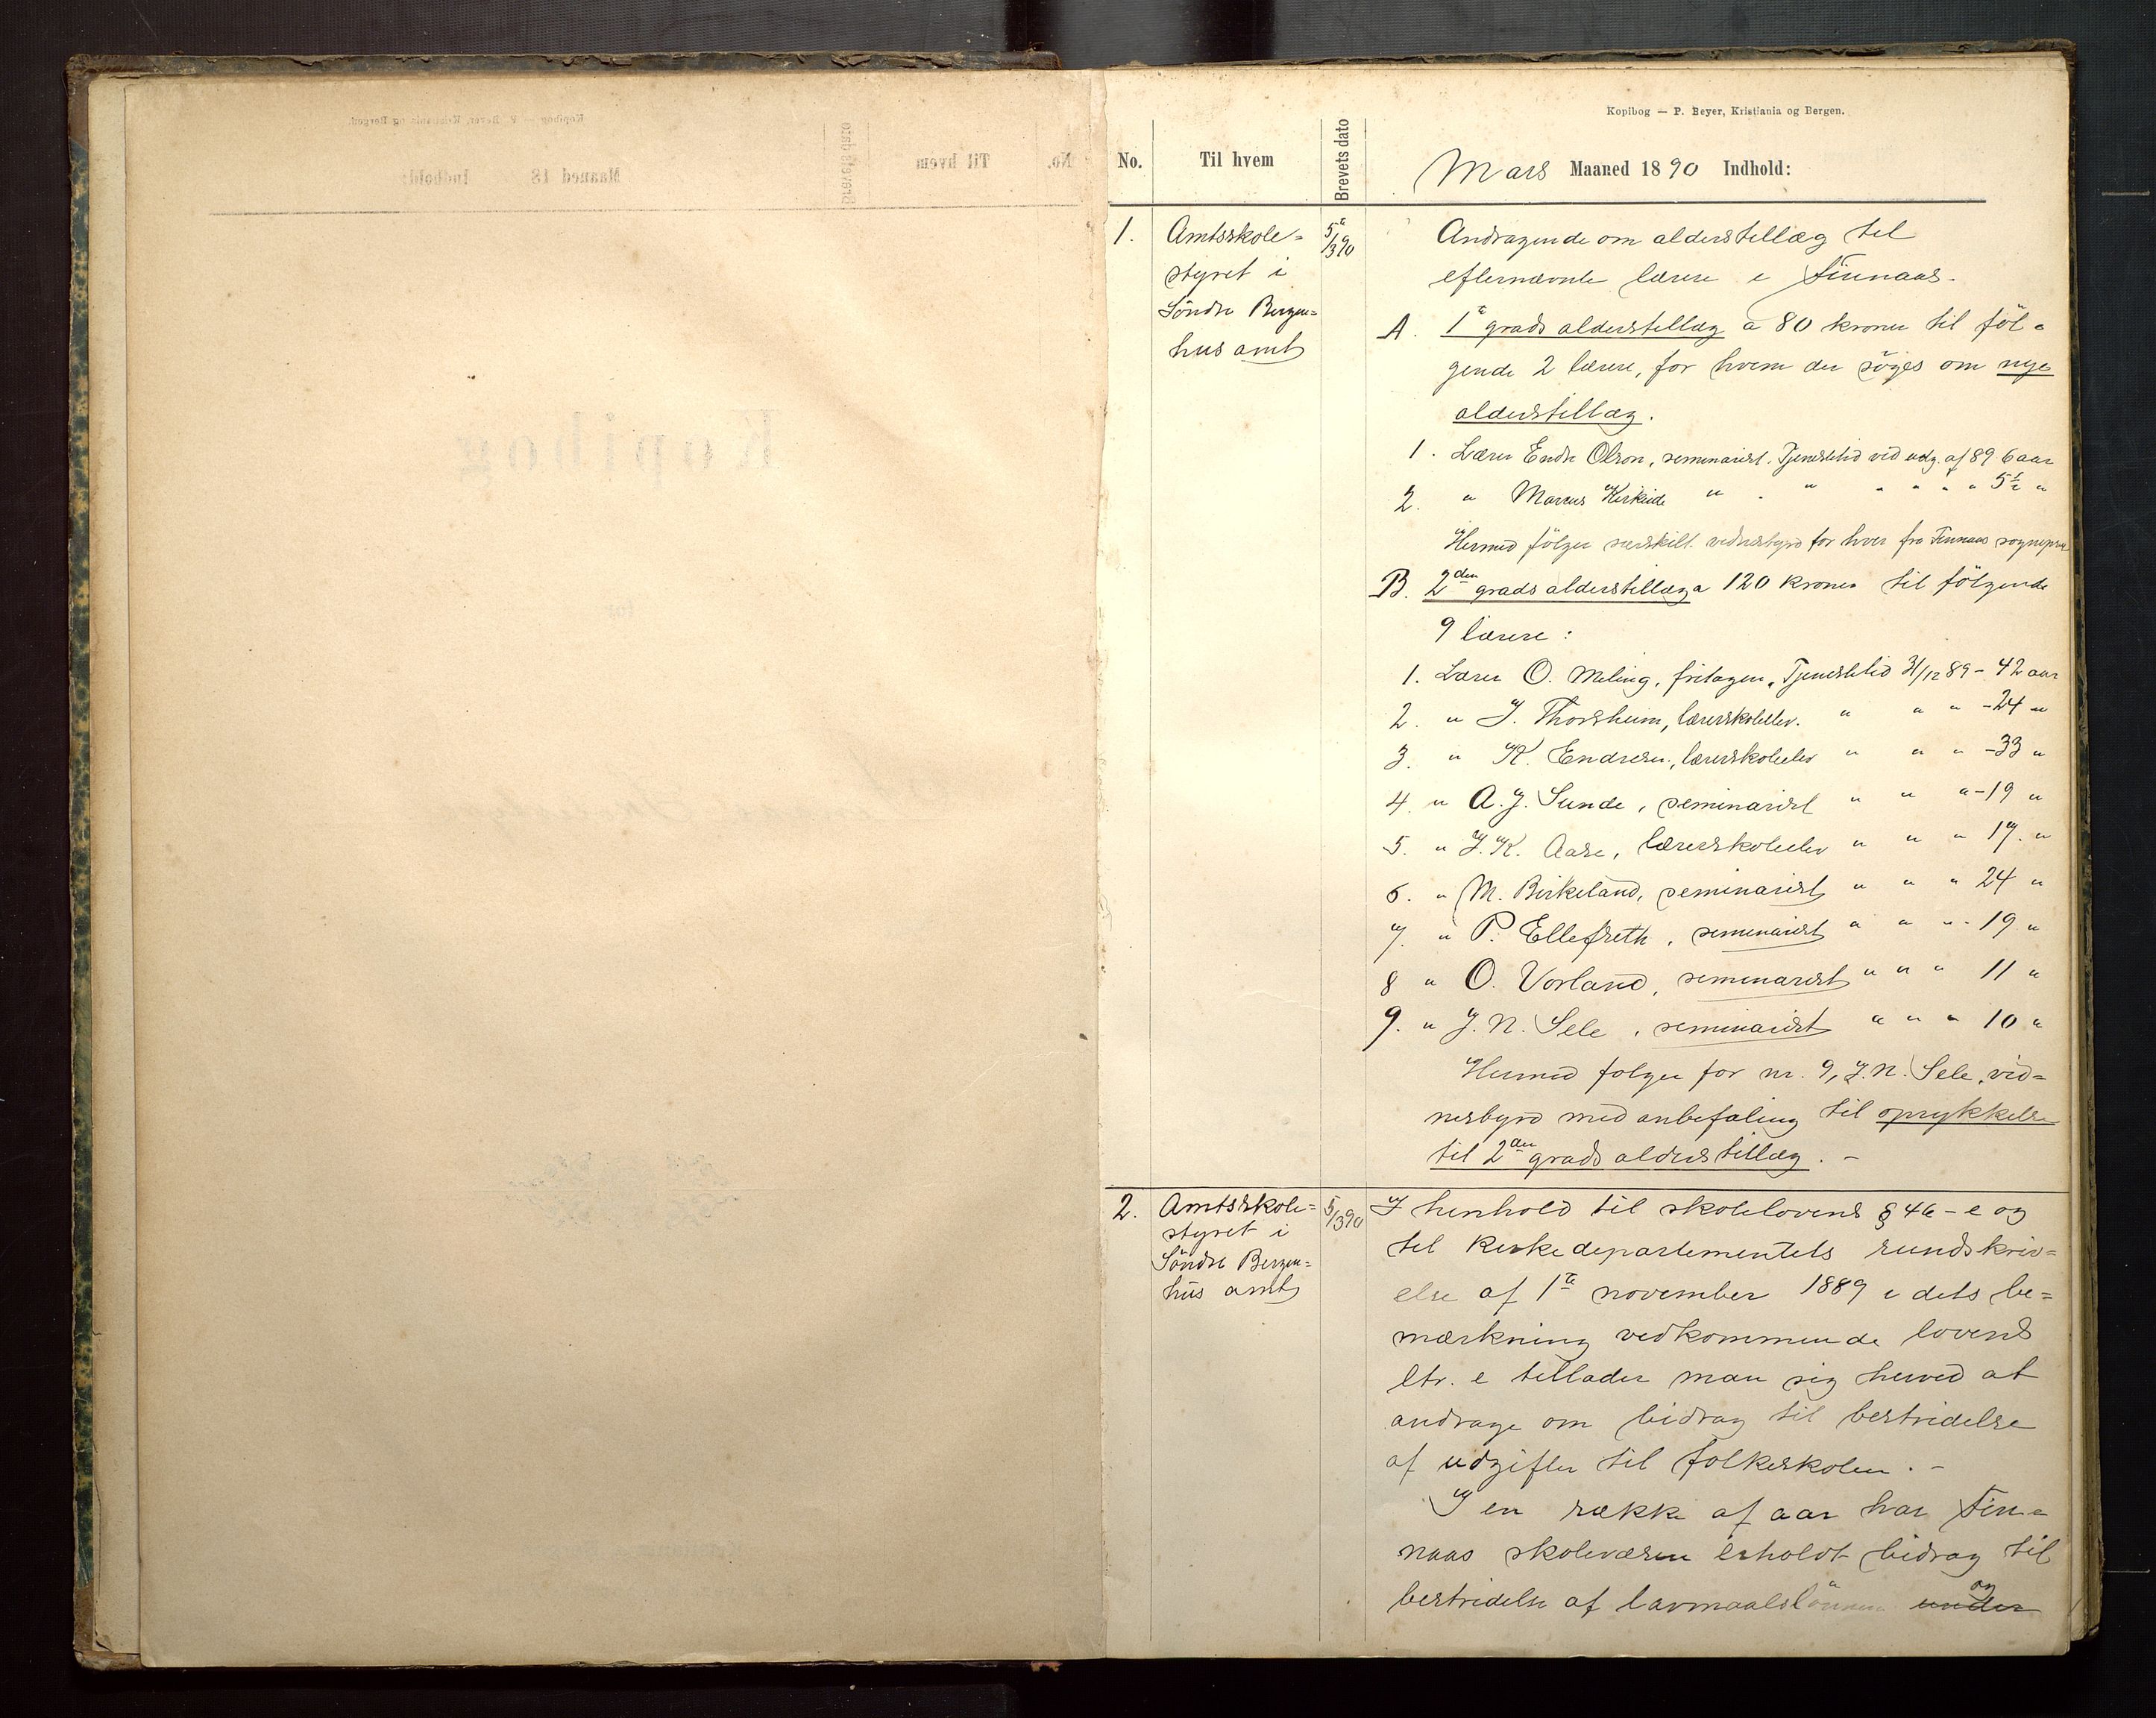 Kopibog — P. Beyer, Kristiania og Bergen.
No. Til hvem Brevets dato Mars Maaned 1890 Indhold:
1. Amtsskole=
styret i
Söndre Bergen=
hus amt
5/3 90
Andragende om alderstillæg til
efternævnte lærere i Finnaas.
A. 1ste grads alderstillæg a 80 kroner til föl=
gende 2 lærere, for hvem der söges om nye
alderstillæg.
1. Lærer Endre Olson, seminarist. Tjenestetid vid udg. af 89 6 aar
2. " Marcus " " " " " " 5½ "
Hermed fölger særskilt vidnesbyrd for hver fra Finnaas sognepræst
B. 2den grads alderstillæg a 120 kroner til fölgende
9 lærere:
1. Lærer O. Meling, fritagen, Tjenestetid 31/12 89 - 42 aar
2. " J. Thorsheim, lærerskoleelev. " " " - 24 "
3. " K. Endresen, lærerskoleelev " " " - 33 "
4. " A. J. Sunde, seminarist " " " - 19 "
5. " J. K. Aase, lærerskoleelev " " " 17. "
6. " M. Birkeland, seminarist " " " 24 "
7. " P. Ellefseth, seminarist " " " - 19 "
8 " O. Vorland, seminarist " " " 11 "
9. " J. N. Sele, seminarist " " " 10 "
Hermed folger for nr. 9, J. N. Sele, vid=
nesbyrd med anbefaling til oprykkelse
til 2den grads alderstillæg. -
2. Amtsskole=
styret i
Söndre Bergen=
hus amt
5/3 90
I henhold til skolelovens § 46 - e og
til Kirkedepartementets rundskriv=
else af 1ste november 1889 i dets be=
mærkning vedkommende lovens
ltr. e tillader man sig herved at
andrage om bidrag til bestridelse
af udgifter til folkeskolen. -
I en række af aar har Fin=
naas skolevæsen erholdt bidrag til
bestridelse af lavmaalslönnen under og